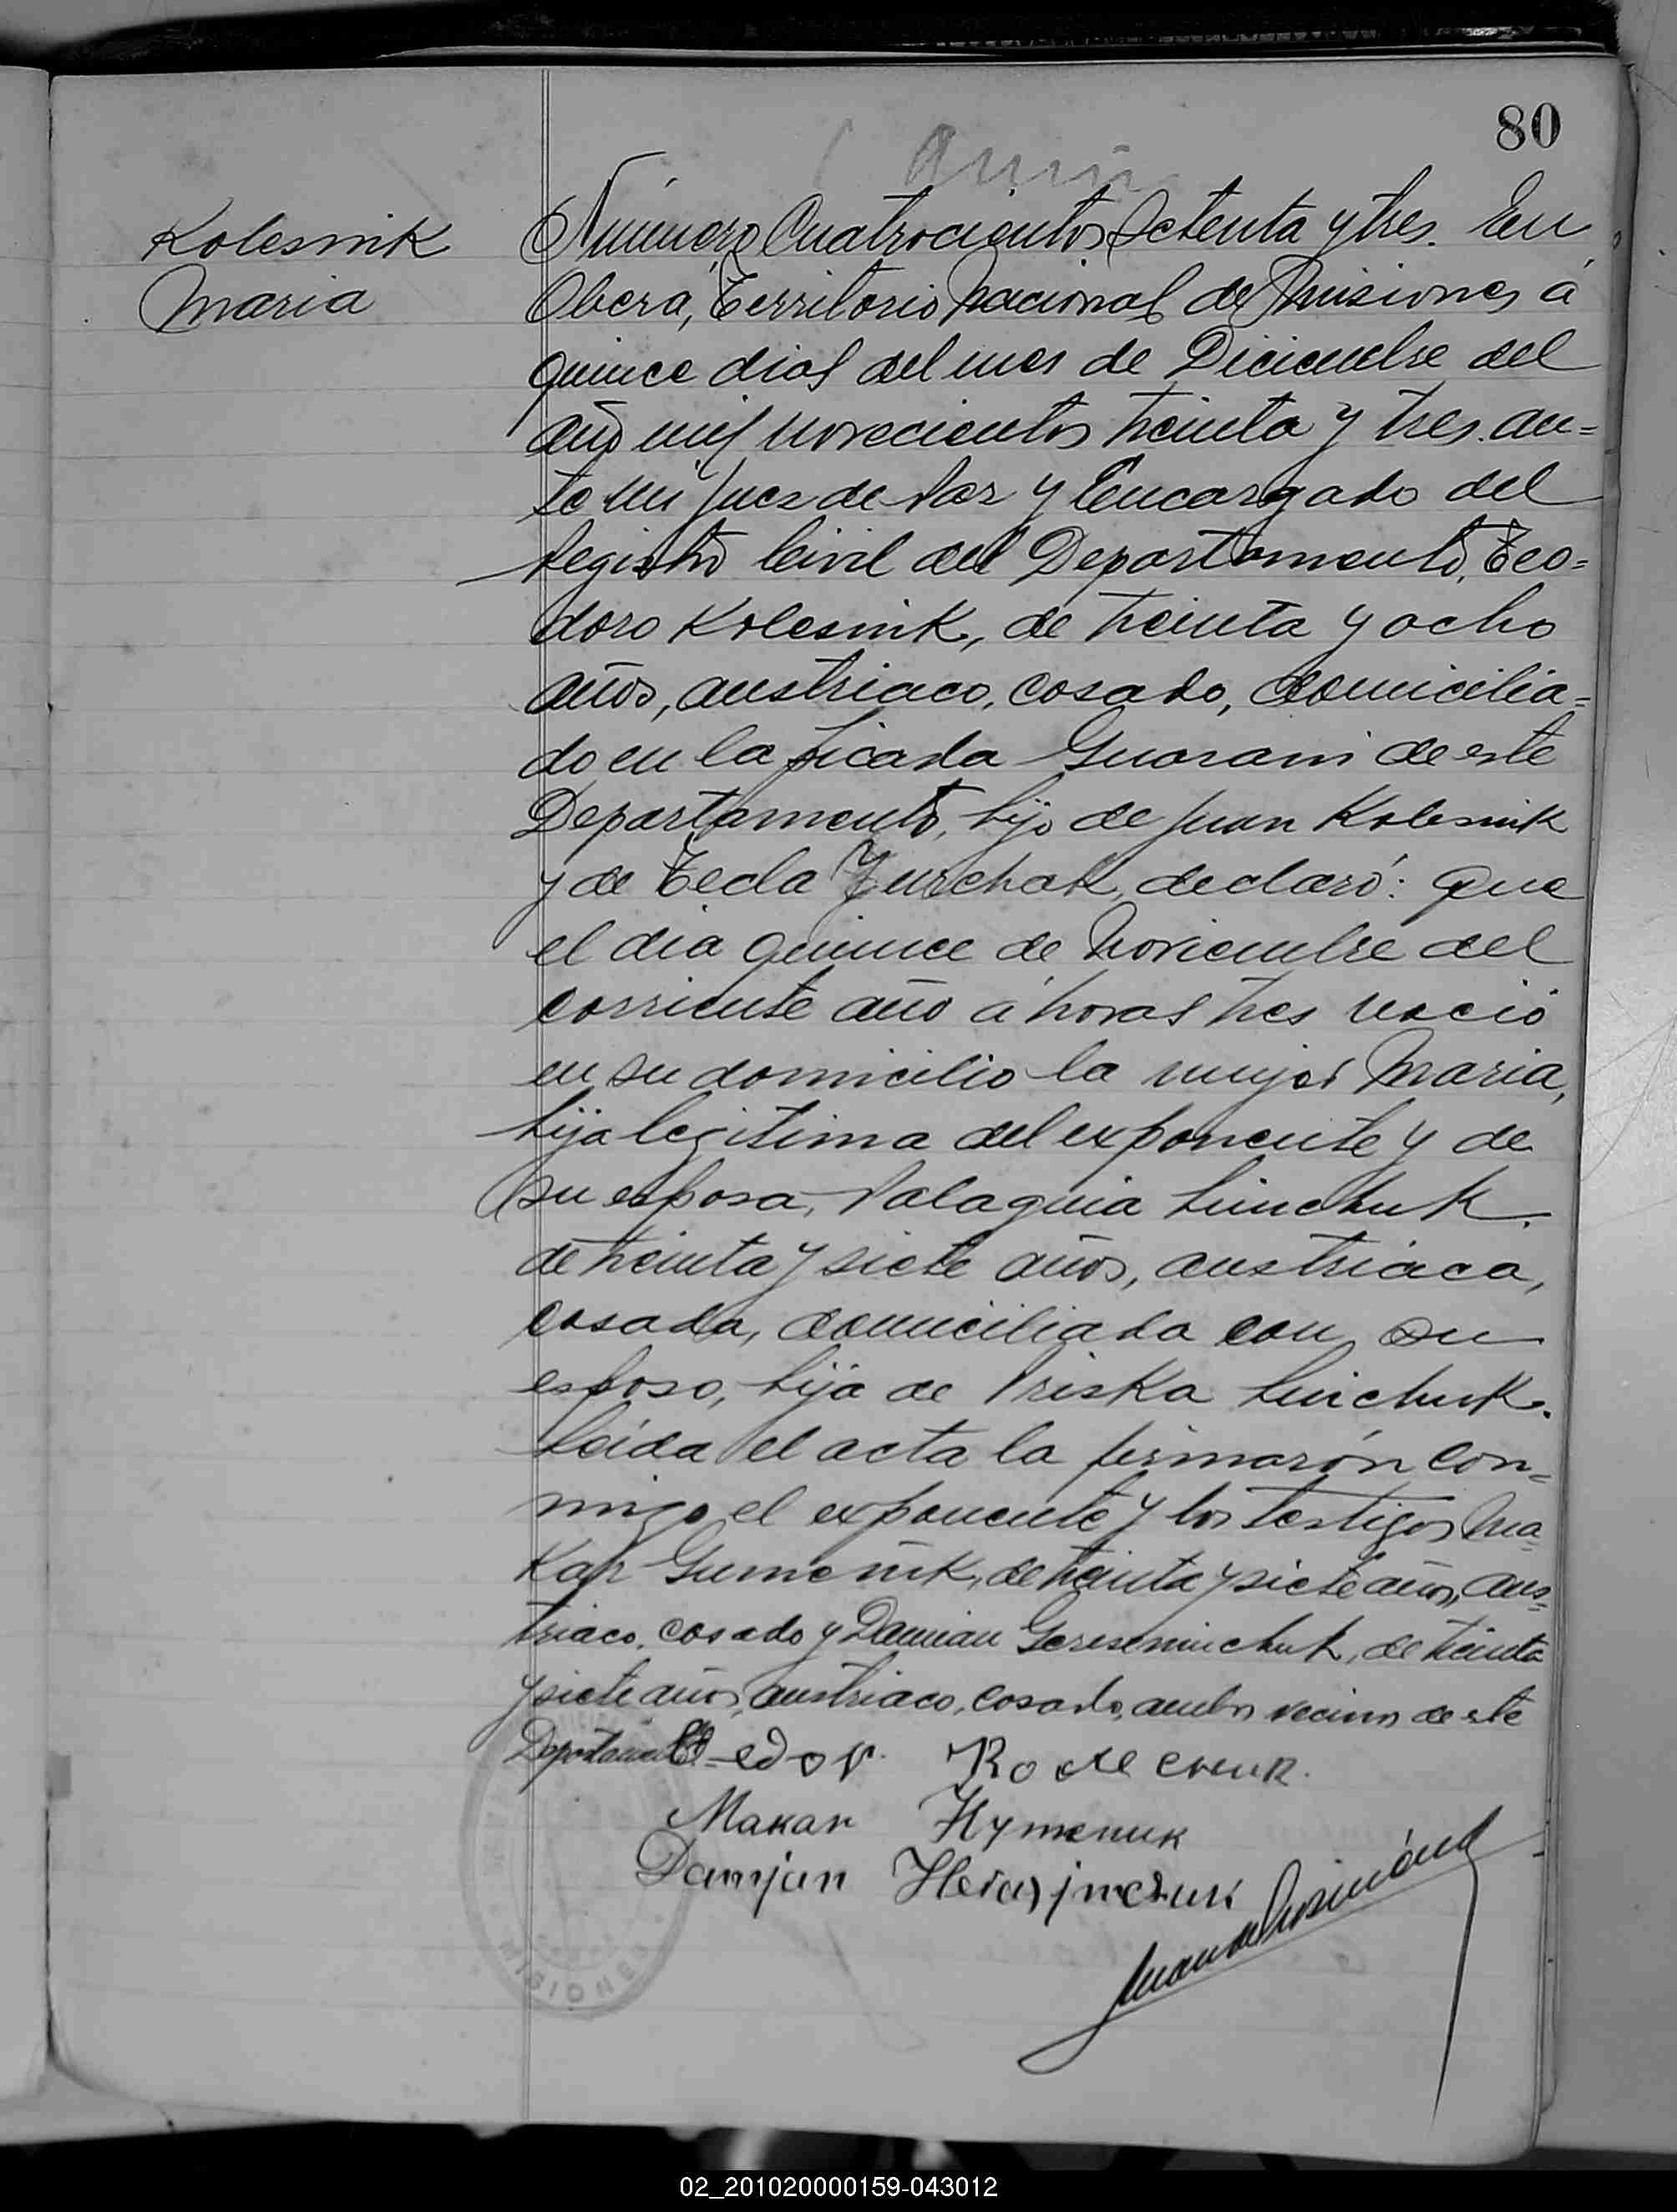 80
Kolesnik
Maria
Número Cuatrocientos Setenta y tres. En
Oberá, Territorio Nacional de Misiones á
quince dias del mes de Diciembre del
año mil novecientos treinta y tres. an=
te mi Juez de Paz y Encargado del
Registro Civil del Departamento, Teo=
doro Kolesnik, de treinta y ocho
años, austriaco, casado, domicilia=
do en la picada Guarani de este
Departamento, hijo de Juan Kolesnik
y de Tecla Jurchak, declaró: que
el dia quince de Noviembre del
corriente año á horas tres nació
en su domicilio la mujer Maria,
hija legitima del exponente y de
su esposa, Palaguia Linchuk.
de treinta y siete años, austriaca,
casada, domiciliada con su
esposo, hija de Priska Linchuk.
Leida el acta la firmarón con=
migo el exponente y los testigos Ma=
kar Gumeñik, de treinta y siete años, aus=
triaco, casado y Damian Geresminchuk, de treinta
y siete años, austriaco, casado, ambos vecinos de este
Departamento
Макар
Damjan
MISIONES
02_201020000159-043012